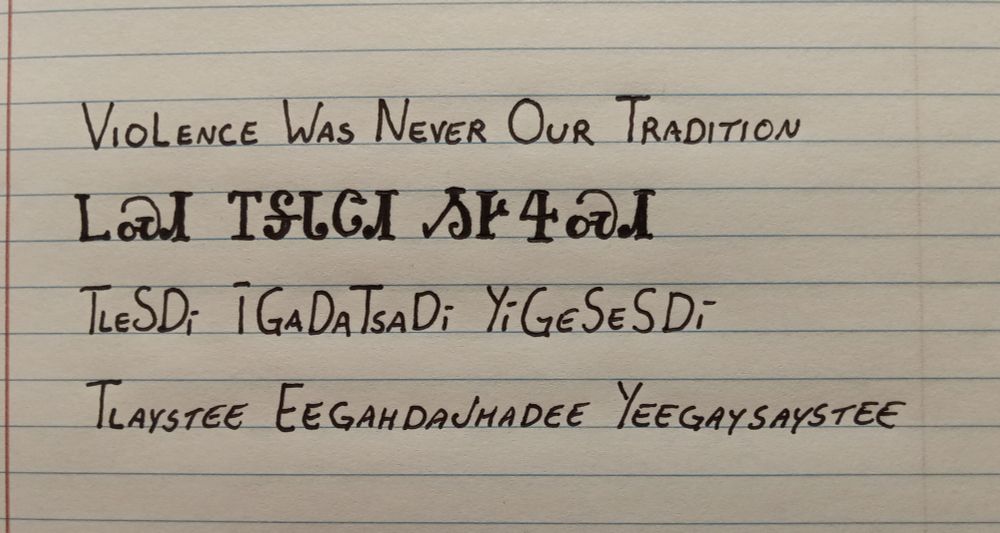 Violence Was Never Our Tradition
ᏞᏍᏗ ᎢᎦᏓᏣᏗ ᏱᎨᏎᏍᏗ
TleSDi iGaDaTsaDi YiGeSeSDi
Tlaystee Eegahdajhadee Yeegaysaystee